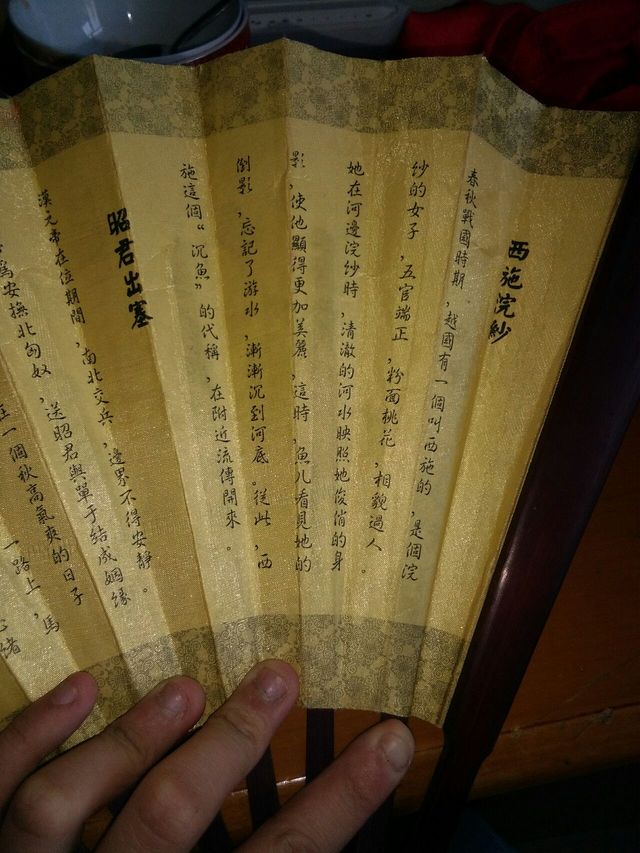 西施浣紗
春秋戰國時期，越國有一個叫西施的，是個浣
紗的女子，五官端正，粉面桃花，相貌過人。
她在河邊浣紗時，清澈的河水映照她俊俏的身
影，使他顯得更加美麗，這時，魚儿看見她的
倒影，忘記了游水，漸漸沉到河底。從此，西
施這個“沉魚”的代稱，在附近流傳開來。
昭君出塞
漢元帝在位期間，南北交兵，邊界不得安靜。
為安撫北匈奴，送昭君與單于結成姻緣
一個秋高氣爽的日子
一路上，馬